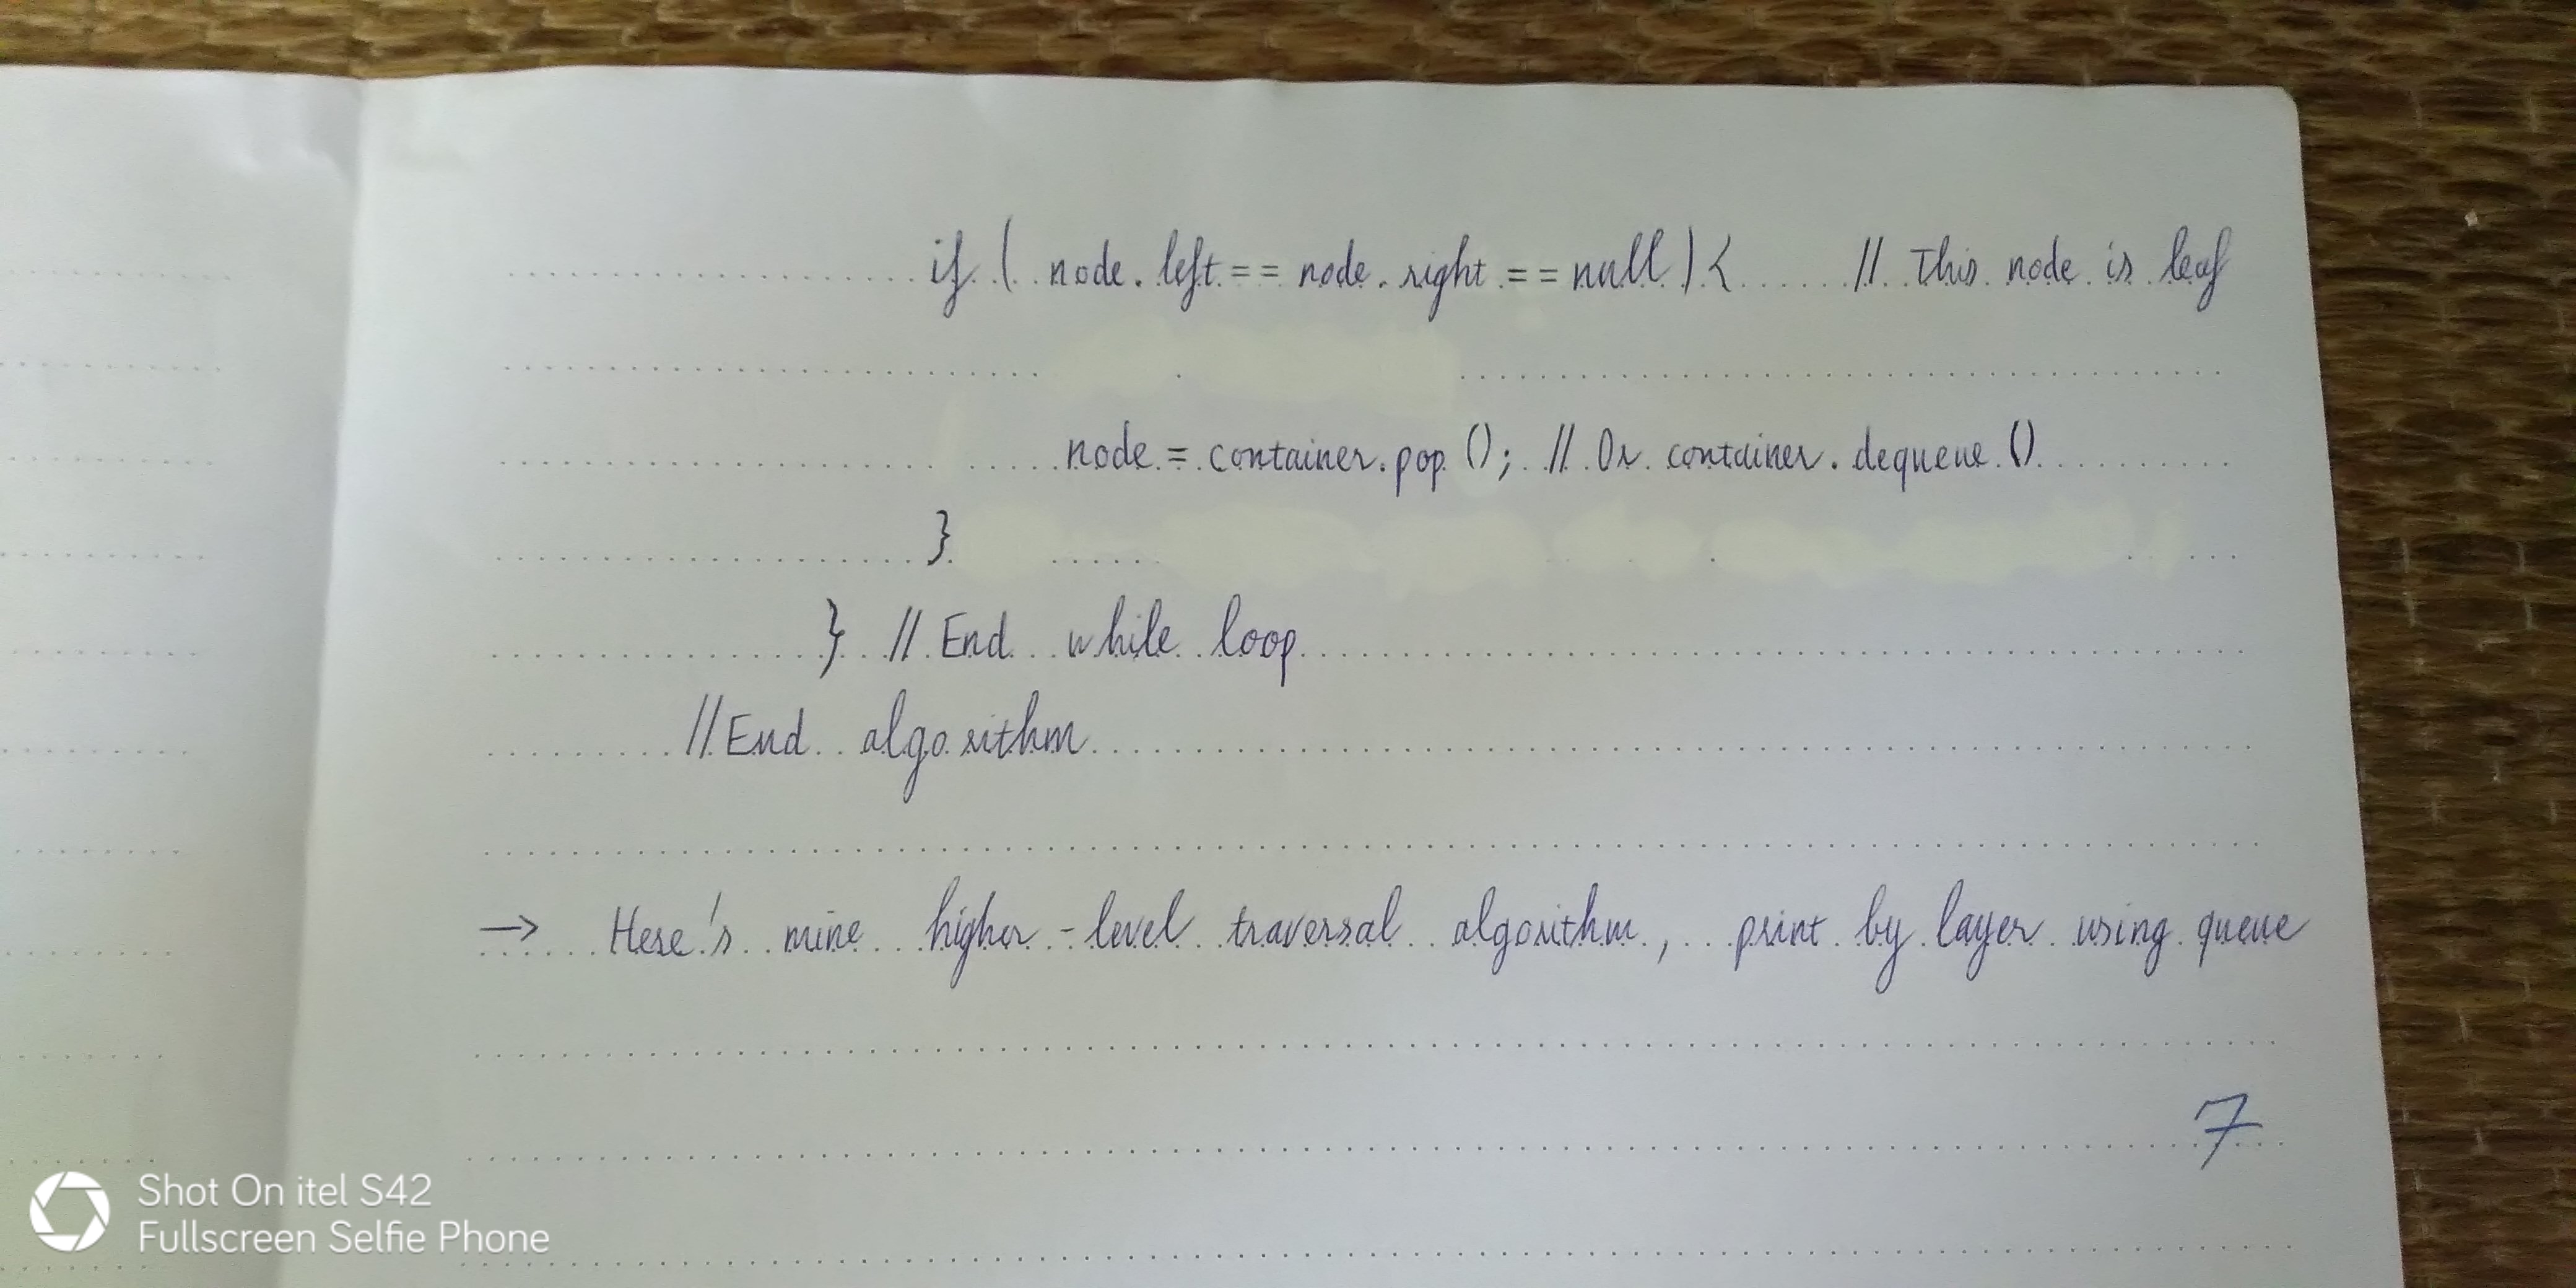 if ( node.left == node.right == null ) { // This node is leaf
node = container.pop (); // Or container.dequeue ()
}
} // End while loop
// End algorithm
→ Here's mine higher-level traversal algorithm, print by layer using queue
7
Shot On itel S42
Fullscreen Selfie Phone